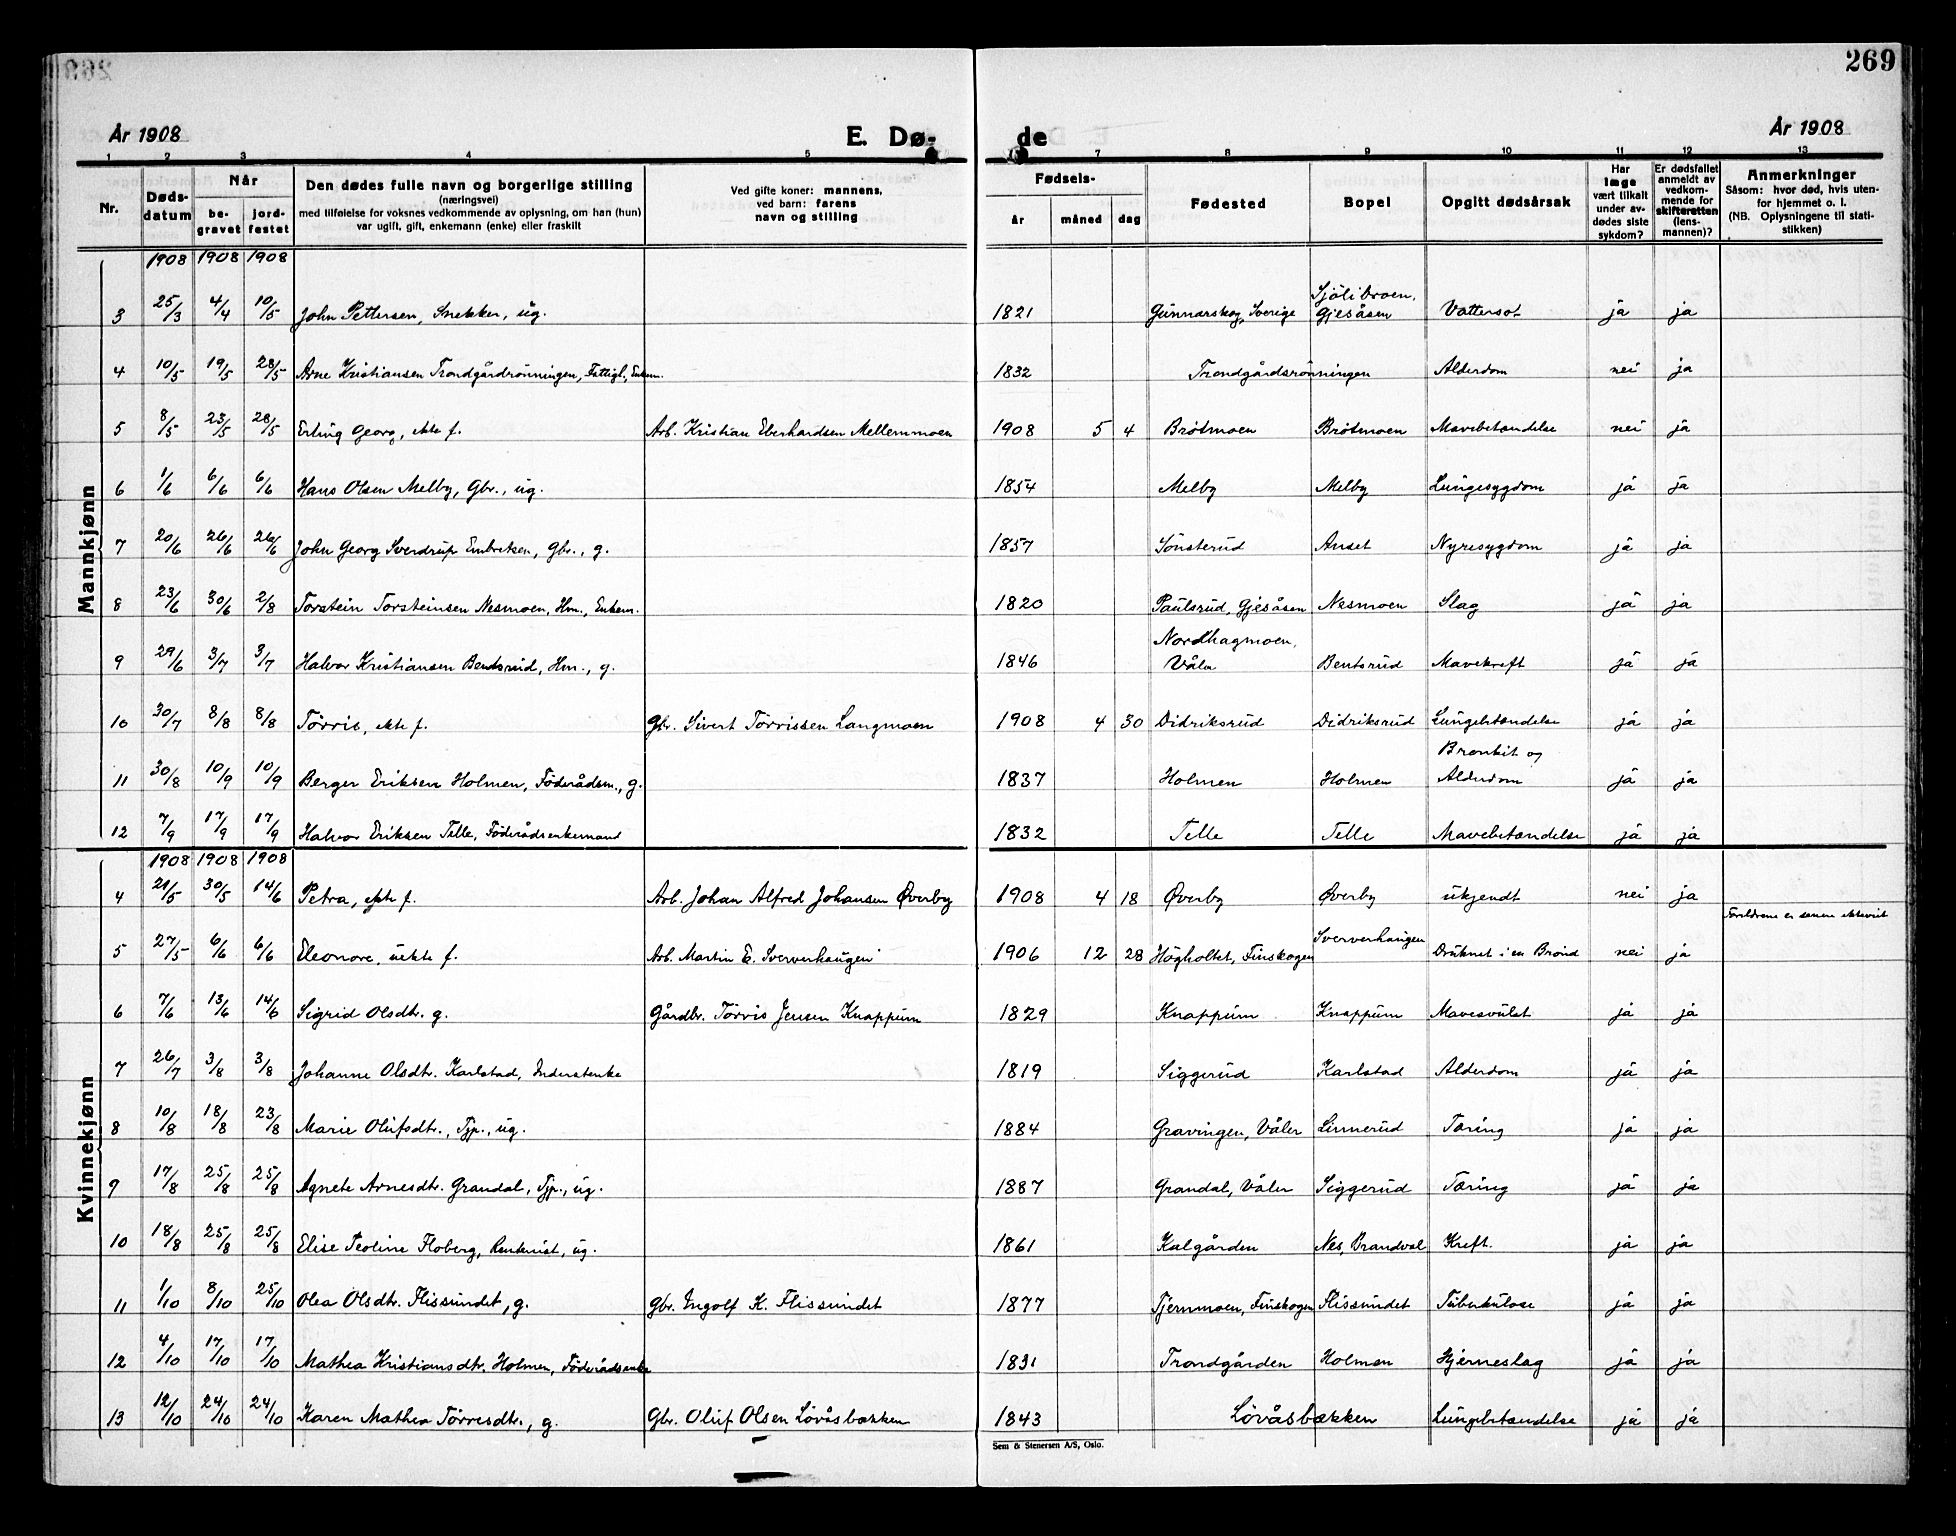 269
År 1908 E. Dø- de År 1908
1 2 3 4 5 7 8 9 10 11 12 13
Nr. Døds-datum Når be-gravet jord-festet Den dødes fulle navn og borgerlige stilling (næringsvei) med tilføielse for voksnes vedkommende av oplysning, om han (hun) var ugift, gift, enkemann (enke) eller fraskilt Ved gifte koner: mannens, ved barn: farens navn og stilling Fødsels- år måned dag Fødested Bopel Opgitt dødsårsak Har læge vært tilkalt under av-dødes siste sykdom? Er dødsfallet anmeldt av vedkom-mende for skifteretten (lens-mannen)? Anmerkninger Såsom: hvor død, hvis uten-for hjemmet o. l. (NB. Oplysningene til stati-stikken)
Mannkjønn
1908 1908 1908
3 25/3 4/4 10/5 John Pettersen, Snekker, ug. 1821 Gunnarskog, Sverige Sjölibroen, Gjesåsen Vattersot ja ja
4 10/5 19/5 28/5 Arne Kristiansen Trondgårdrönningen, Fattigl., Enkem. 1832 Trondgårdsrönningen Alderdom nei ja
5 8/5 23/5 28/5 Erling Georg, ekte f. Arb. Kristian Eberhardsen Mellemmoen 1908 5 4 Brötmoen Brötmoen Mavebetændelse nei ja
6 1/6 6/6 6/6 Hans Olsen Melby, Gbr., ug. 1854 Melby Melby Lungesygdom ja ja
7 20/6 26/6 26/6 John Georg Sverdrup Embretsen, Gbr., g. 1857 Sönsterud Anset Nyresygdom ja ja
8 23/6 30/6 2/8 Torstein Torsteinsen Nesmoen, Hm., Enkem. 1820 Paulsrud, Gjesåsen Nesmoen Slag ja ja
9 29/6 3/7 3/7 Halvor Kristiansen Bentsrud, Hm., g. 1846 Nordhagmoen, Våler Bentsrud Mavekreft ja ja
10 30/7 8/8 8/8 Törris, ekte f. Gbr. Sivert Törrissen Langmoen 1908 4 30 Didriksrud Didriksrud Lungebetændelse ja ja
11 30/8 10/9 10/9 Berger Eriksen Holmen, Föderådsm., g. 1837 Holmen Holmen Bronkit og Alderdom ja ja
12 7/9 17/9 17/9 Halvor Eriksen Telle, Föderådsenkemand 1832 Telle Telle Mavebetændelse ja ja
Kvinnekjønn
1908 1908 1908
4 21/5 30/5 14/6 Petra, ekte f. Arb. Johan Alfred Johansen Øverby 1908 4 18 Øverby Øverby ukjendt nei ja
5 27/5 6/6 6/6 Eleonore, uekte f. Arb. Martin E. Sververhaugen 1906 12 28 Högholtet, Finskogen Sververhaugen Druknet i en Brönd nei ja Foreldrene er senere ektevist
6 7/6 13/6 14/6 Sigrid Olsdtr. g. Gårdbr. Törris Jensen Knappum 1829 Knappum Knappum Mavesvulst ja ja
7 26/7 3/8 3/8 Johanne Olsdtr. Karlstad, Inderstenke 1819 Siggerud Karlstad Alderdom ja ja
8 10/8 18/8 23/8 Marie Olufsdtr., Tjp., ug. 1884 Gravingen, Våler Linnerud Tæring ja ja
9 17/8 25/8 25/8 Agnete Arnesdtr. Grandal, Tjp., ug. 1887 Grandal, Våler Siggerud Tæring ja ja
10 18/8 25/8 25/8 Elise Teoline Floberg, Rentenist, ug. 1861 Kalgården Nes, Brandval Kreft. ja ja
11 1/10 8/10 25/10 Olea Olsdtr. Flissundet, g. Gbr. Ingolf K. Flissundet 1877 Tjernmoen, Finskogen Flissundet Tuberkulose ja ja
12 4/10 17/10 17/10 Mathea Kristiansdtr. Holmen, Föderådsenke 1831 Trondgården Holmen Hjerneslag ja ja
13 12/10 24/10 24/10 Karen Mathea Törresdtr., g. Gbr. Oluf Olsen Lövåsbækken 1843 Lövåsbækken Lungebetændelse ja ja
Sem & Stenersen A/S, Oslo.